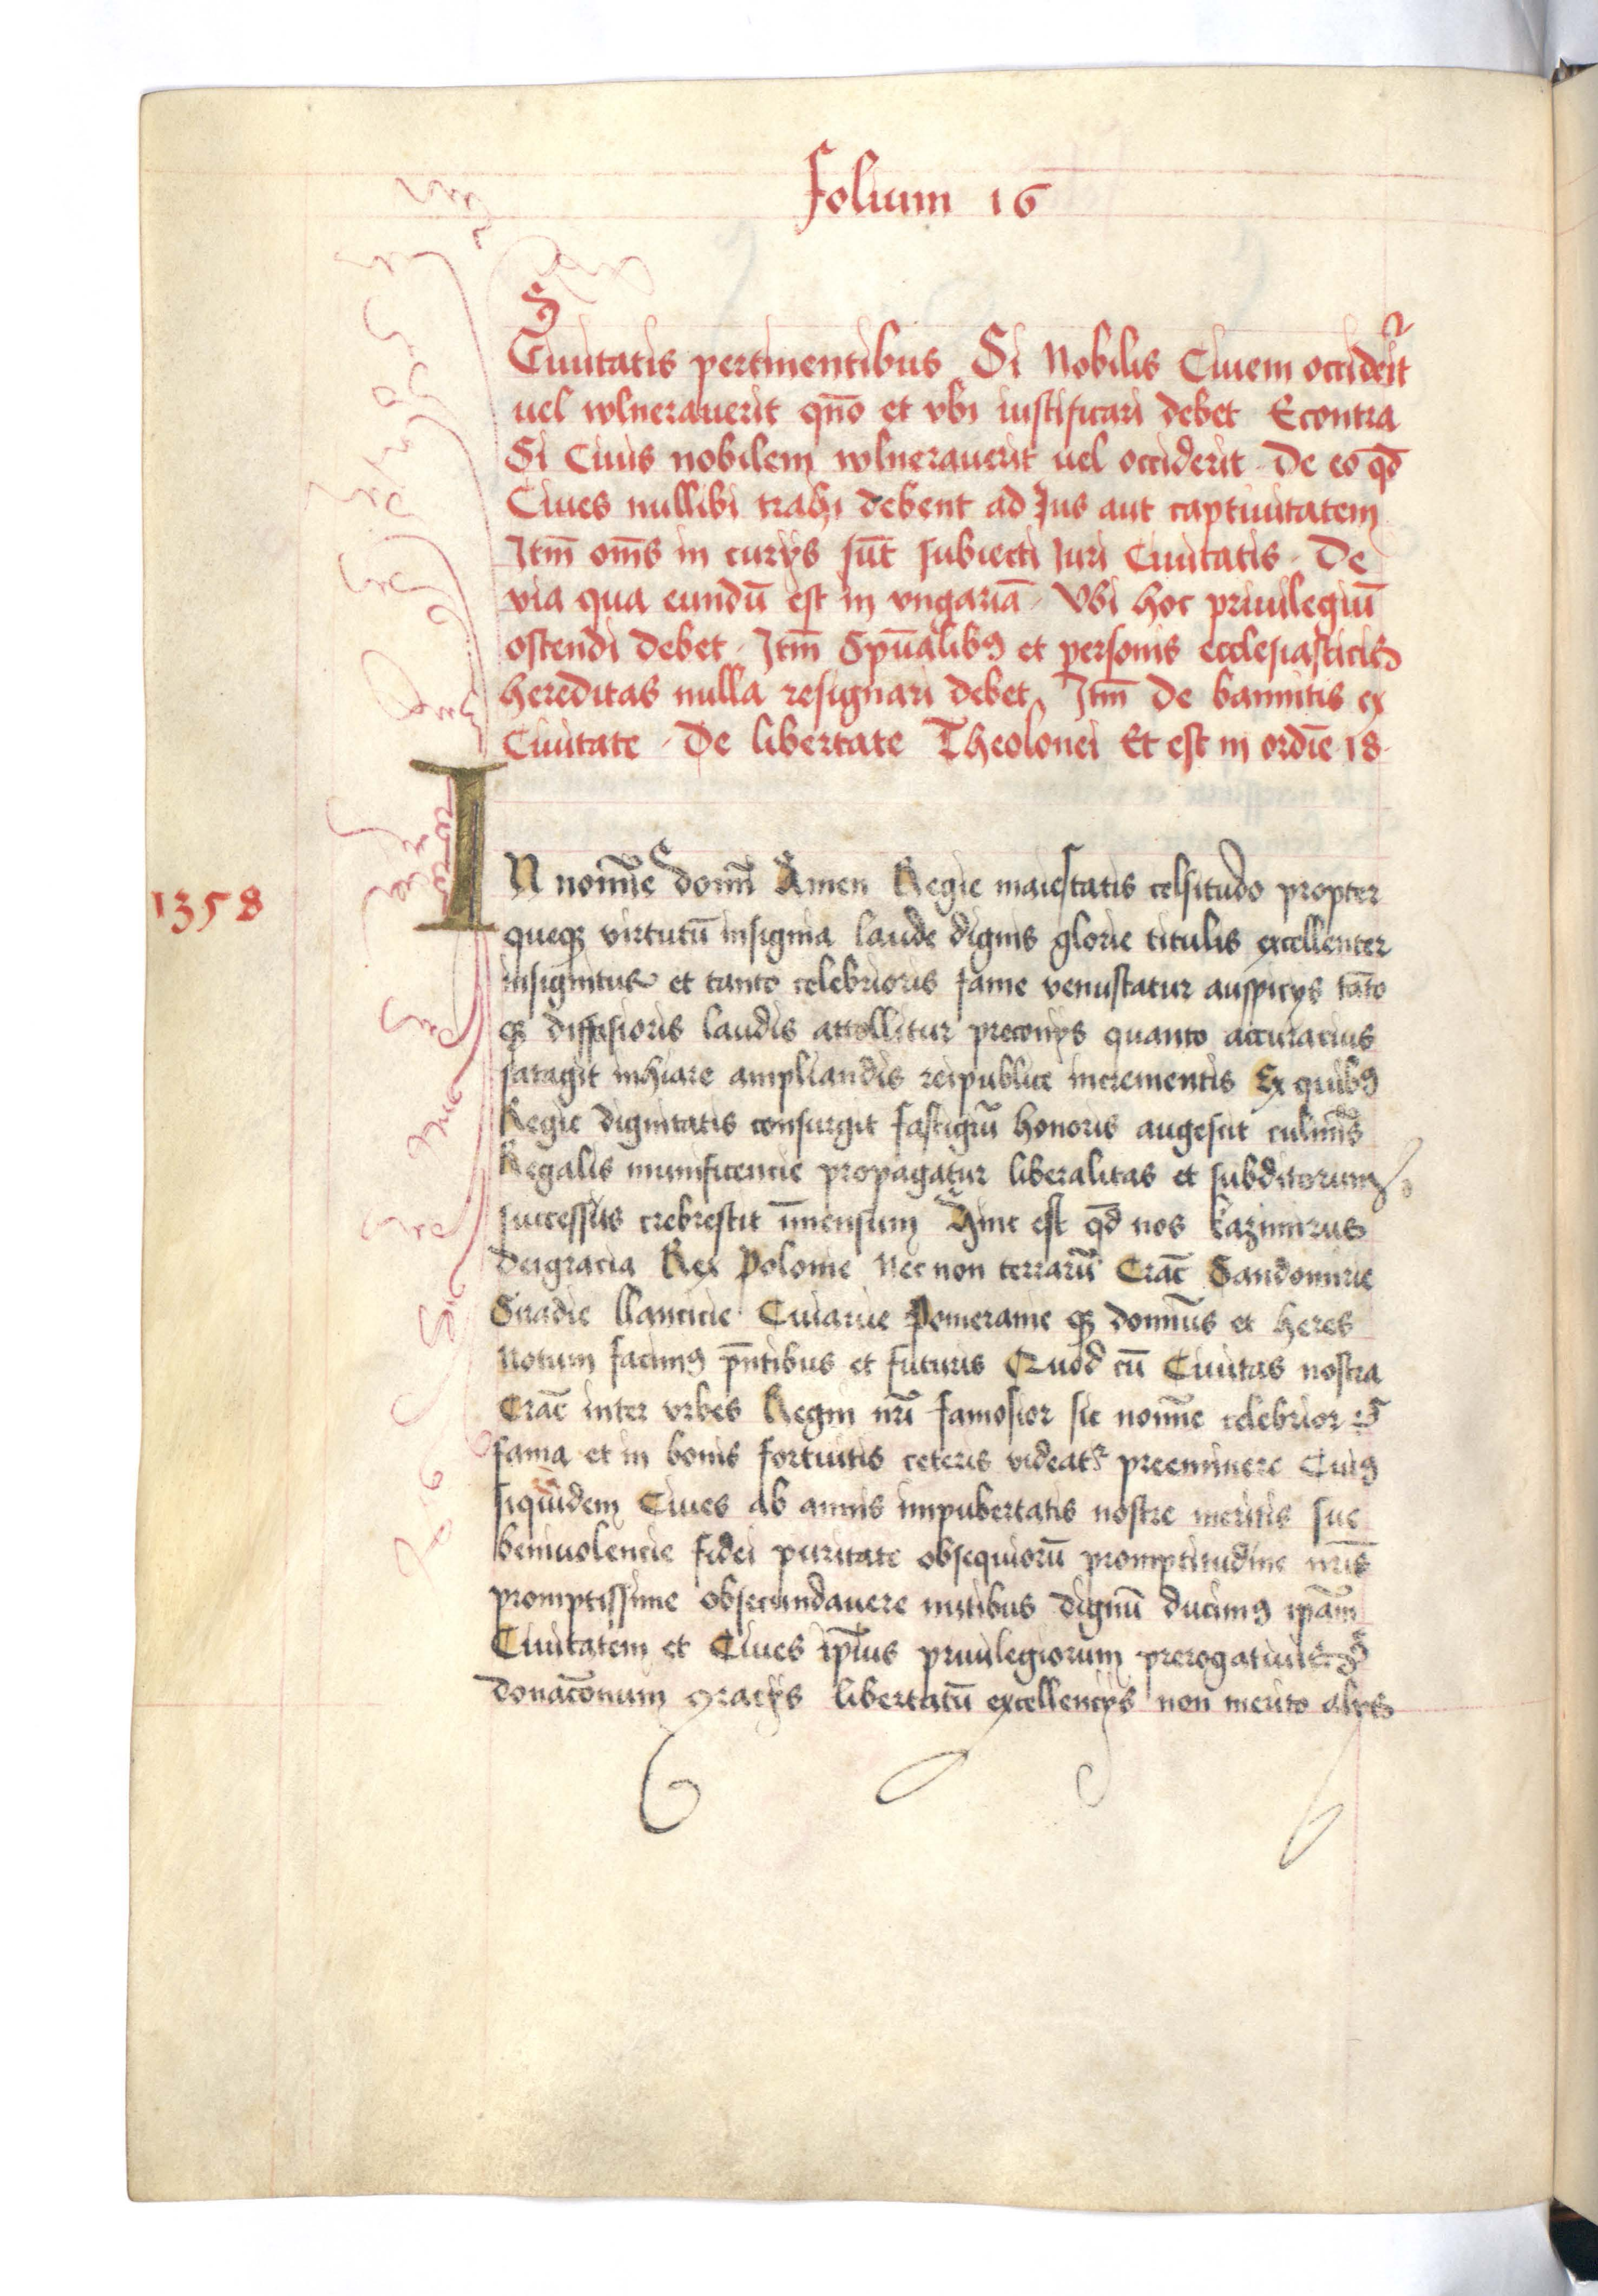 folium 16
Ciuitatis pertinentibus Si Nobilis Ciuem occiderit
uel wlnerauerit qn̄o et vbi iustificari debet Econtra
Si Ciuis nobilem wlnerauerit uel occiderit De eo qd̄
Ciues nullibi trahi debent ad Jus aut captiuitatem
Itm̄ om̄s in curijs sūt subiecti Iuri Ciuitatis De
via qua eundū est in vngariā Vbi hoc priuilegiū
ostendi debet Itm̄ Spūalibꝯ et personis ecclesiasticis
hereditas nulla resignari debet Itm̄ De bannitis ex
Ciuitate De libertate Theolonei Et est in ordīe 18
1358
IN noīe domī Amen Regie maiestatis celsitudo propter
queqꝫ virtutū insignia laude dignis glorie titulis excellenter
insignitur et tanto celebrioris fame venustatur auspicijs tāto
qꝫ diffusioris laudis attollitur preconijs quanto accuracius
satagit inhiare ampliandis reipublice incrementis Ex quibꝯ
Regie dignitatis consurgit fastigiū honoris augescit culmīs
Regalis munificencie propagatur liberalitas et subditorum
successus crebrescit īmensum Hinc est qd̄ nos kazimirus
deigracia Rex Polonie Nec non terrarū Crac̄ Sandomirie
Siradie llancicie Cuiauie Pomeranie qꝫ domīus et heres
Notum facimꝯ pn̄tibus et futuris Quod cū Ciuitas nostra
Crac̄ inter vrbes Regni nr̄i famosior sic noīe celebrior
fama et in bonis fortuitis ceteris videatr̄ preeminere Cuiꝯ
siquidem Ciues ab annis impubertatis nostre meritis sue
beniuolencie fidei puritate obsequiorū promptitudine nr̄is
promptissime obsecundauere nutibus dignū ducimꝯ ip̄am
Ciuitatem et Ciues ip̄ius priuilegiorum prerogatiuis
donac̄onum gracijs libertatū excellencijs non merito alijs